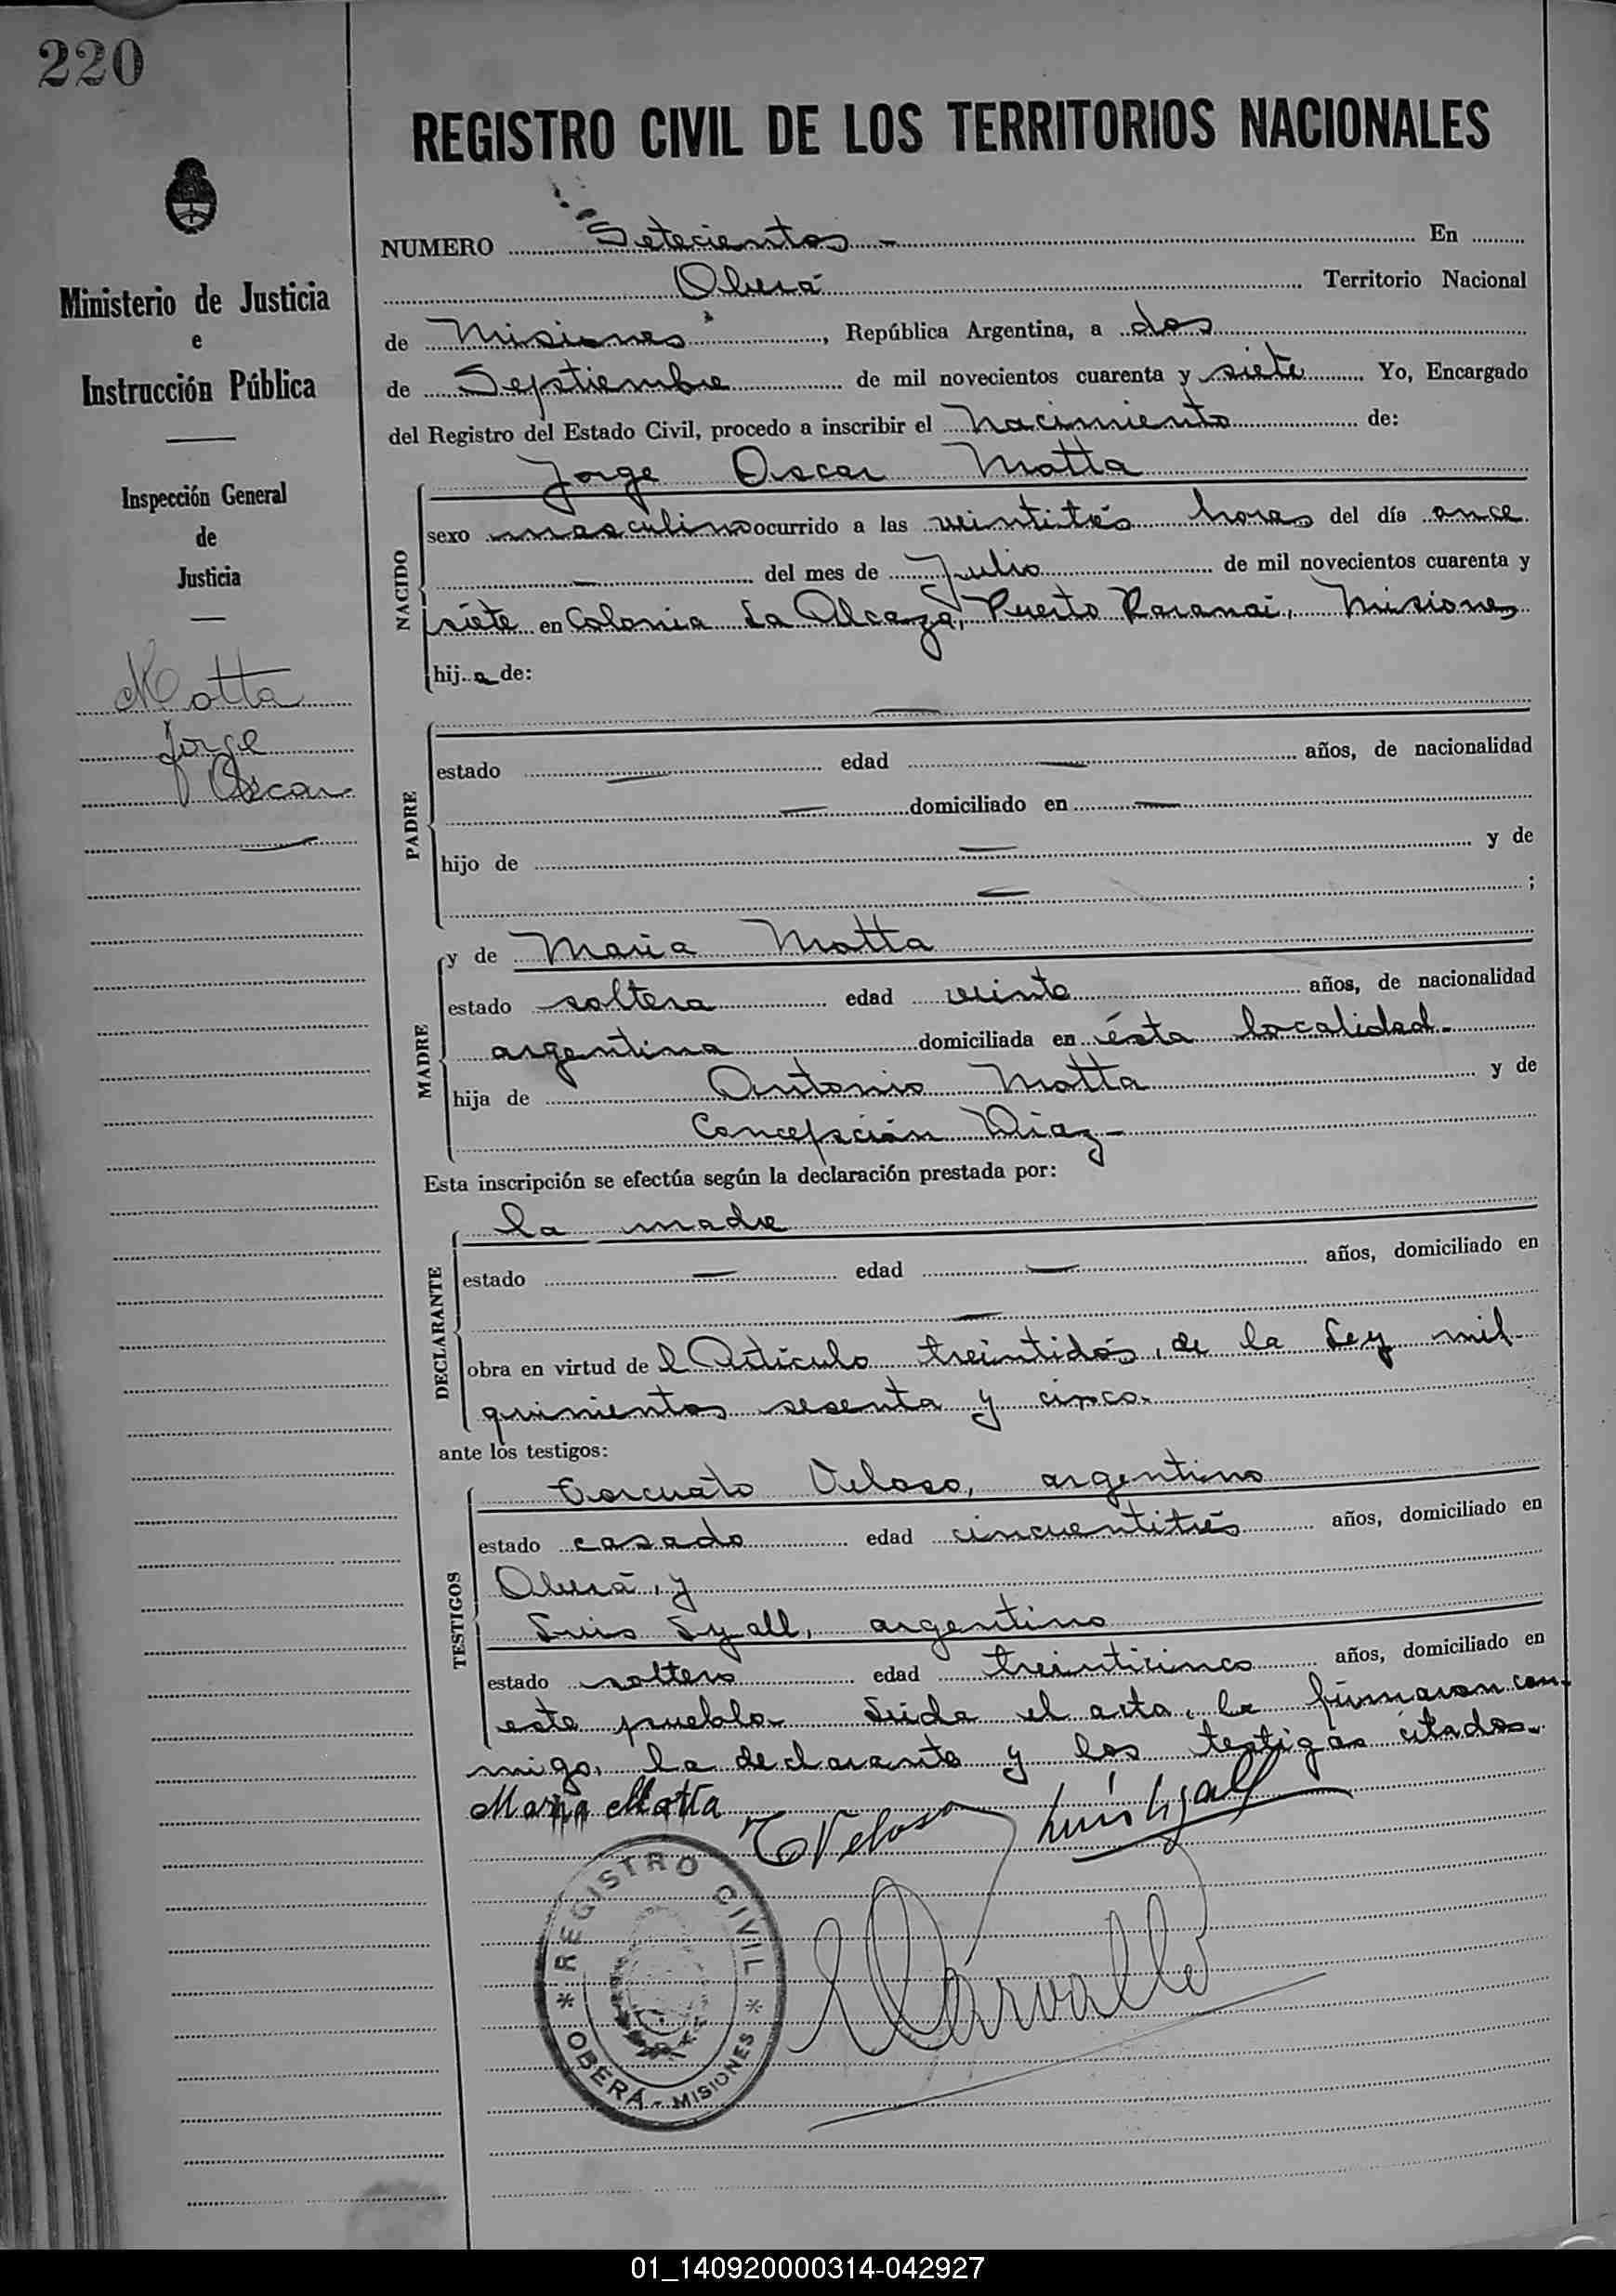 220
REGISTRO CIVIL DE LOS TERRITORIOS NACIONALES
Ministerio de Justicia
e
Instrucción Pública
Inspección General
de
Justicia
Motta
Jorge
Oscar
NUMERO Setecientos - En
Oberá Territorio Nacional
de Misiones, República Argentina, a dos
de Septiembre de mil novecientos cuarenta y siete Yo, Encargado
del Registro del Estado Civil, procedo a inscribir el nacimiento de:
Jorge Oscar Motta
NACIDO
sexo masculino ocurrido a las veintitrés horas del día once
- del mes de Julio de mil novecientos cuarenta y
siete en Colonia La Alcaza, Puerto Paranai, Misiones
hij o de:
—
PADRE
estado — edad — años, de nacionalidad
— domiciliado en —
hijo de — y de
— ;
y de Maria Motta
MADRE
estado soltera edad veinte años, de nacionalidad
argentina domiciliada en ésta localidad.-
hija de Antonio Motta y de
Concepción Diaz -
Esta inscripción se efectúa según la declaración prestada por:
la madre
DECLARANTE
estado — edad — años, domiciliado en
—
obra en virtud de l Artículo treintidós, de la Ley mil
quinientos sesenta y cinco.
ante los testigos:
TESTIGOS
Torcuato Veloso, argentino
estado casado edad cincuentitrés años, domiciliado en
Oberá, y
Luis Lyall, argentino
estado soltero edad treinticinco años, domiciliado en
este pueblo. Leida el acta, la firmaron con-
migo, la declarante y los testigos citados.
Maria Motta TVeloso Luis Lyall
REGISTRO CIVIL
* OBERÁ - MISIONES *
Carvallo
01_140920000314-042927